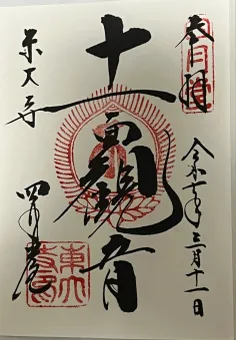 奉拝
令和七年三月十一日
十一面觀音
東大寺
四月堂